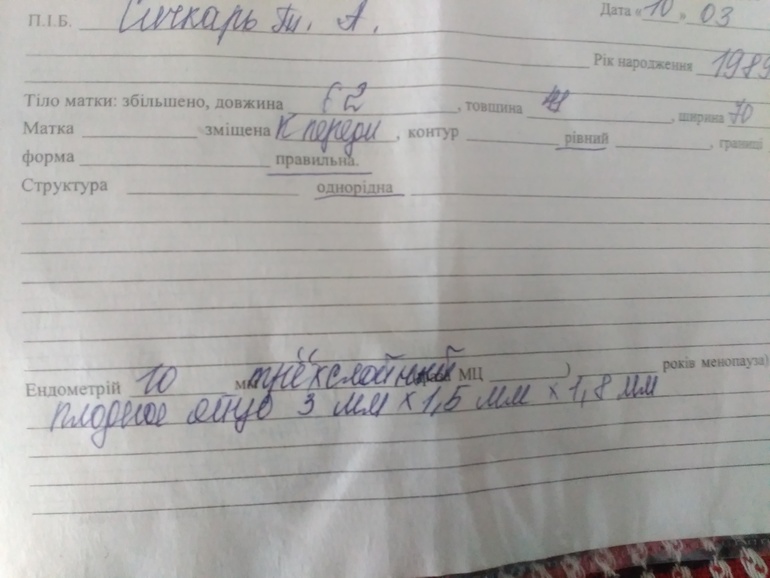 П.І.Б. Сичкарь Ти. А. Дата «10» 03
Рік народження 1989
Тіло матки: збільшено, довжина 62, товщина 41, ширина 70
Матка зміщена к переди, контур рівний, границі
форма правильна.
Структура однорідна
Ендометрій 10 мм трёхслойный МЦ ) років менопауза)
плодное яйцо 3 мм х 1,5 мм х 1,8 мм